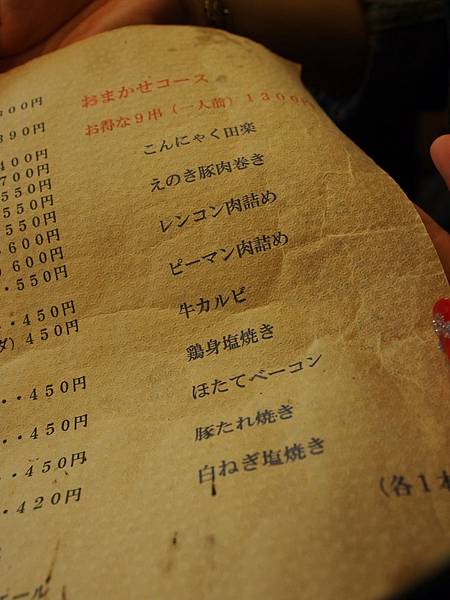 ００円
３９０円
４００円
７００円
５５０円
５５０円
５５０円
６００円
６００円
・５５０円
・・４５０円
ダ）４５０円
・・４５０円
・・４５０円
・・４５０円
・・４２０円
おまかせコース
お得な９串（一人前）１３００円
こんにゃく田楽
えのき豚肉巻き
レンコン肉詰め
ピーマン肉詰め
牛カルビ
鶏身塩焼き
ほたてベーコン
豚たれ焼き
白ねぎ塩焼き
（各１本